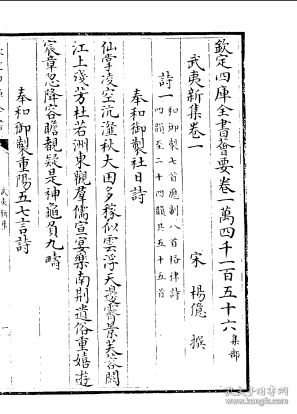 欽定四庫全書會要卷一萬四千一百五十六集部
武夷新集卷一
宋 楊億 撰
詩一和御製七首應制八首格律詩
四韻至二十四韻共五十五首
奉和御製社日詩
仙掌凌空沆瀣秋大田多稼似雲浮天邊霽景芙蓉闕
江上殘芳杜若洲東觀羣儒宣宴樂南荆遺俗重嬉遊
宸章忽降容瞻覩疑是神龜負九疇
奉和御製重陽五七言詩
武夷新集